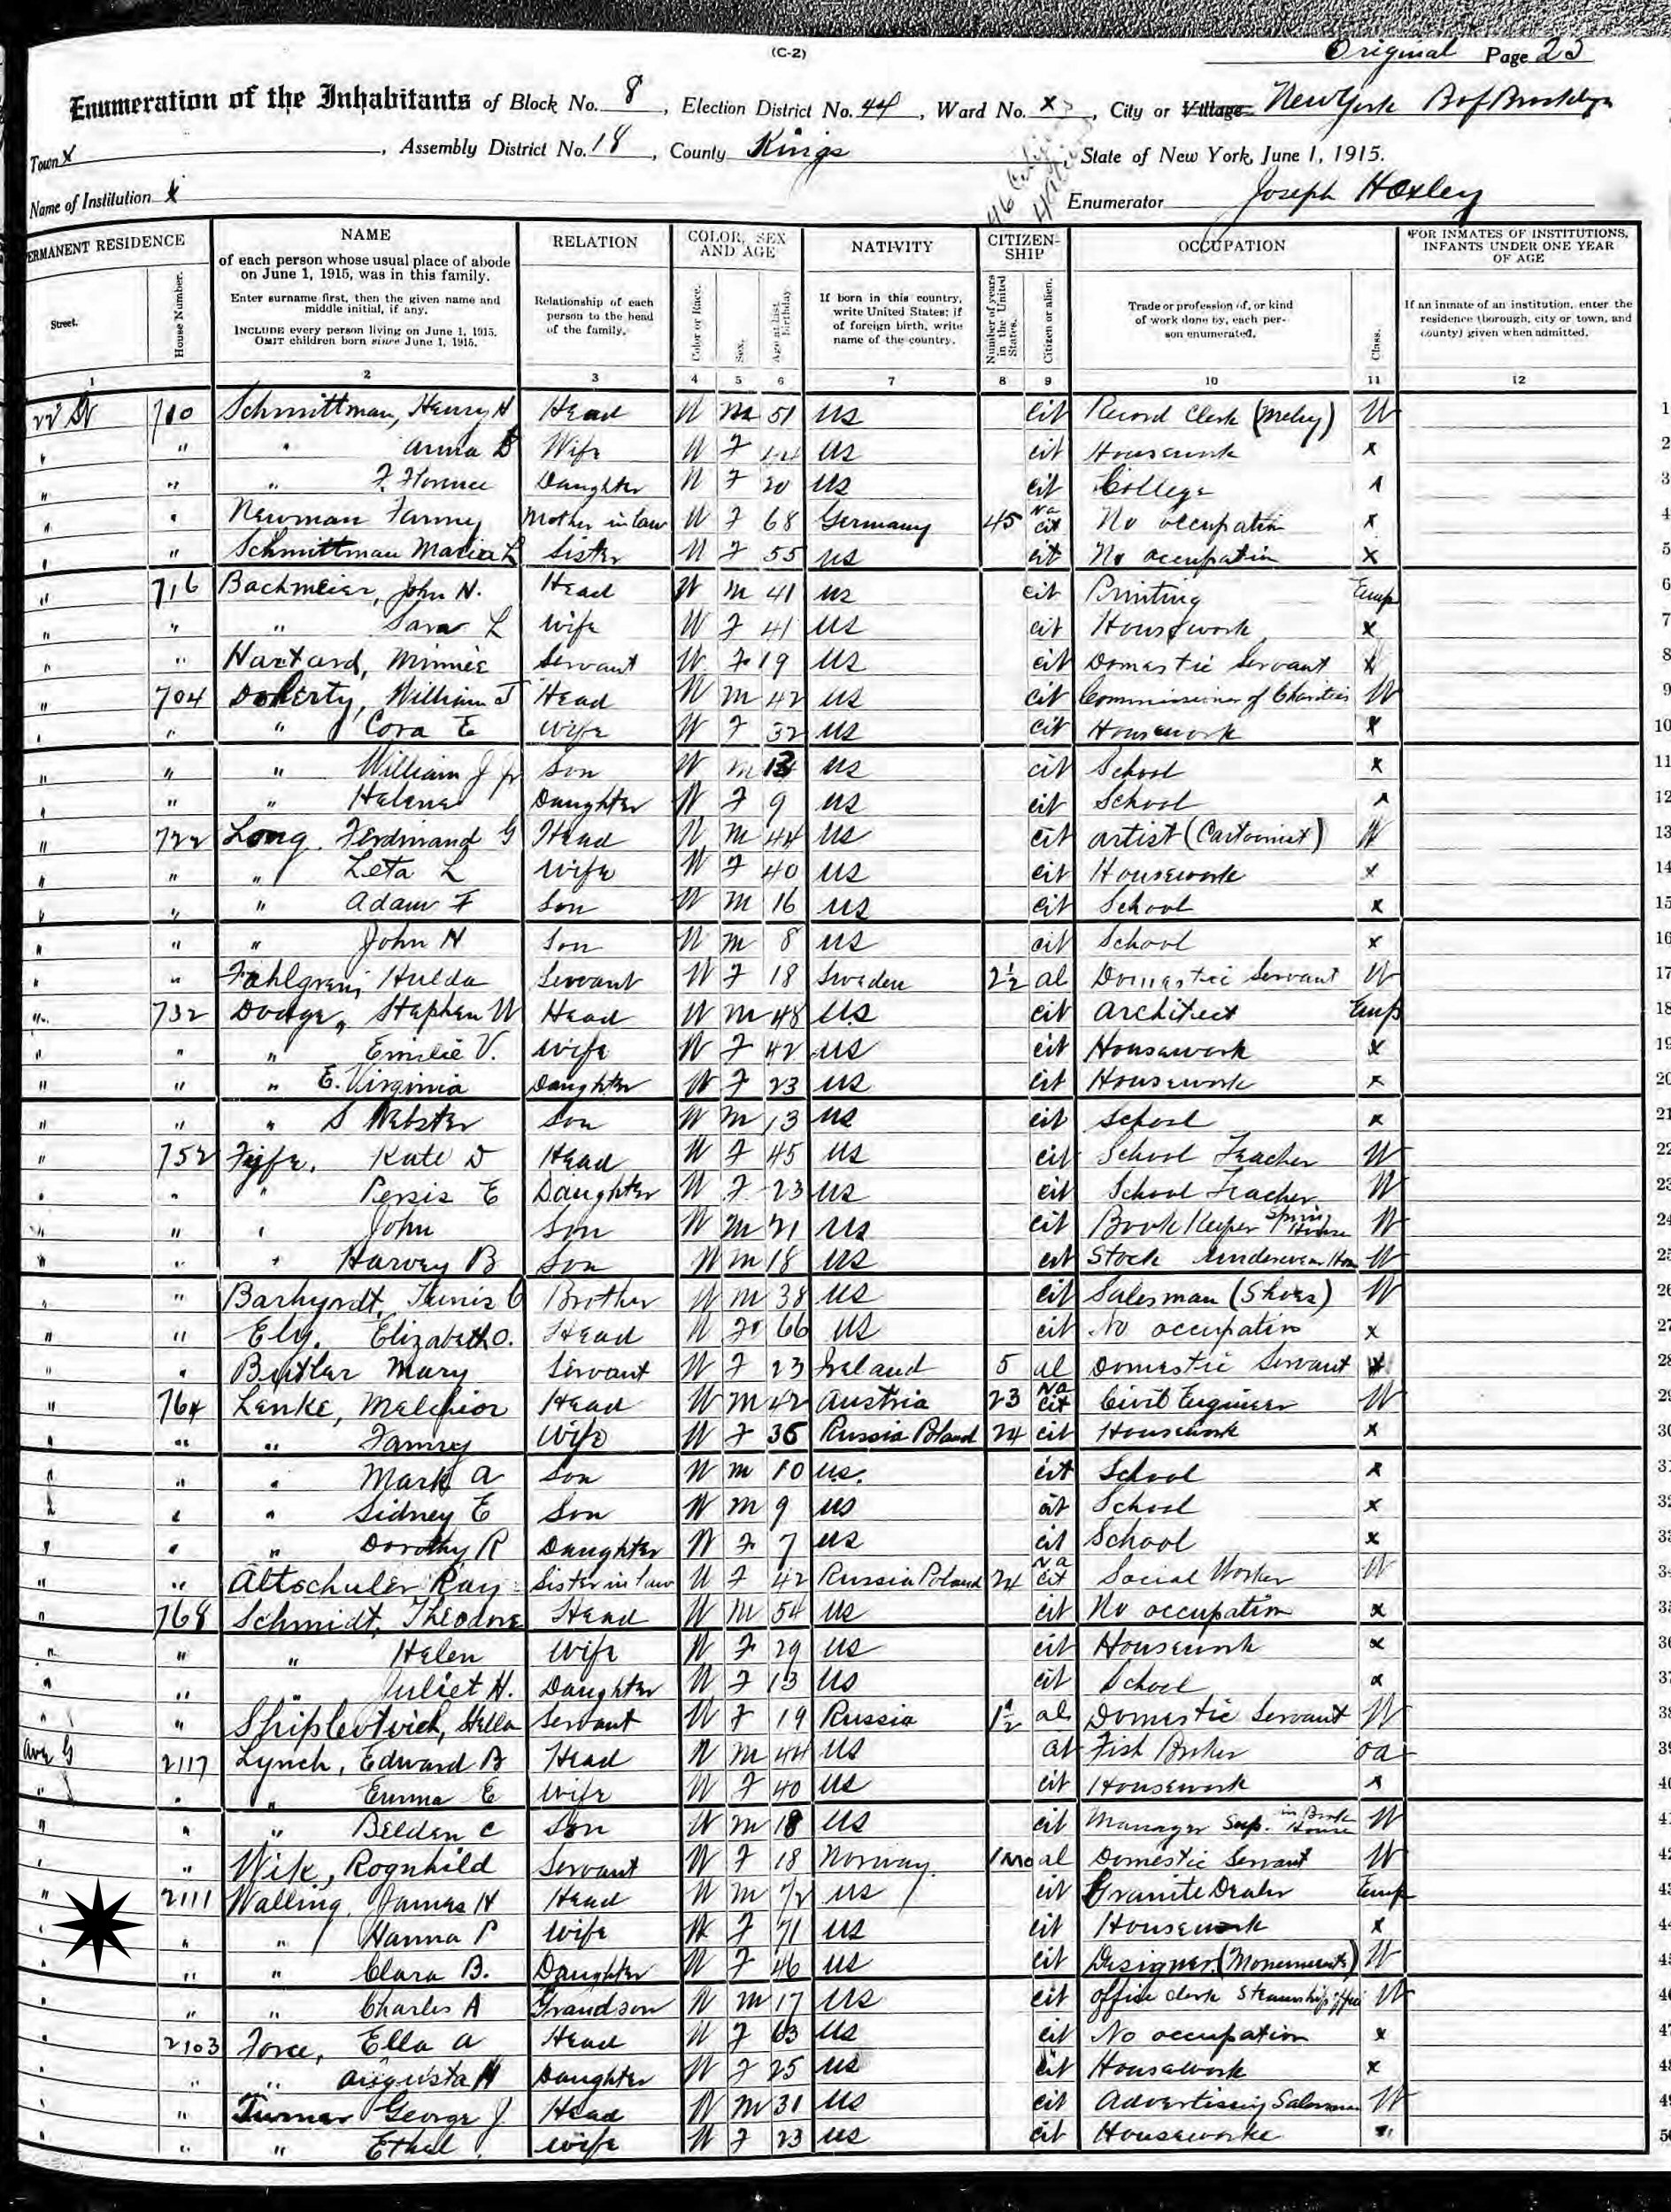 (C-2)
Original Page 23
Enumeration of the Inhabitants of Block No. 8, Election District No. 44, Ward No. x, City or Village New York B of Brooklyn
Town x, Assembly District No. 18, County Kings State of New York, June 1, 1915.
Name of Institution x Enumerator Joseph Hoxley
PERMANENT RESIDENCE NAME RELATION COLOR, SEX AND AGE NATIVITY CITIZEN-SHIP OCCUPATION FOR INMATES OF INSTITUTIONS, INFANTS UNDER ONE YEAR OF AGE
Street. House Number. of each person whose usual place of abode on June 1, 1915, was in this family. Enter surname first, then the given name and middle initial, if any. INCLUDE every person living on June 1, 1915. OMIT children born since June 1, 1915. Relationship of each person to the head of the family. Color or Race. Sex. Age at last birthday. If born in this country, write United States; if of foreign birth, write name of the country. Number of years in the United States. Citizen or alien. Trade or profession of, or kind of work done by, each person enumerated. Class. If an inmate of an institution, enter the residence (borough, city or town, and county) given when admitted.
1 2 3 4 5 6 7 8 9 10 11 12
22 St 710 Schmittman, Henry H Head W M 51 US cit Record Clerk W 1
" " " Anna Wife W F US cit Housework x 2
" " " F. Florence Daughter W F 20 US cit College x 3
" " Newman Fanny Mother in law W F 68 Germany 45 Na cit No occupation x 4
" " Schmittman Maria L Sister W F 55 US cit No occupation x 5
" 716 Bachmeier, John H. Head W M 41 US cit Printing Emp 6
" " " Sara L Wife W F 41 US cit Housework x 7
" " Hartard, Minnie Servant W F 19 US cit Domestic Servant x 8
" 704 Doherty, William J Head W M 42 US cit Commissioner of Charities W 9
" " " Cora E Wife W F 32 US cit Housework x 10
" " " William J Jr Son W M US cit School x 11
" " " Helena Daughter W F 9 US cit School x 12
" 722 Long, Ferdinand G Head W M 44 US cit Artist (Cartoonist) W 13
" " " Leta L Wife W F 40 US cit Housework x 14
" " " Adam F Son W M 16 US cit School x 15
" " " John H Son W M 8 US cit School x 16
" " Hulda Servant W F 18 Sweden 2½ al Domestic Servant W 17
" 732 Dodge, Stephen W Head W M 48 US cit Architect Emp 18
" " " Emilie V. Wife W F 42 US cit Housework x 19
" " " E. Virginia Daughter W F 23 US cit Housework x 20
" " " S Webster Son W M 13 US cit School x 21
" 752 Fyfe, Kate D Head W F 45 US cit School Teacher W 22
" " " Persis E Daughter W F 23 US cit School Teacher W 23
" " " John Son W M 21 US cit Book Keeper W 24
" " " Harvey B Son W M 18 US cit Stock Underwear House W 25
" " Barhyrdt, Tunis C Brother W M 38 US cit Salesman (Shoes) W 26
" " Ely, Elizabeth O. Head W F 66 US cit No occupation x 27
" " Butler Mary Servant W F 23 Ireland 5 al Domestic Servant 28
" 764 Lenke, Melchior Head W M 42 Austria 23 Na cit Civil Engineer W 29
" " " Fanny Wife W F 36 Russia Poland 24 cit Housework x 30
" " " Mark A Son W M 10 US. cit School x 31
" " " Sidney E Son W M 9 US cit School x 32
" " " Dorothy R Daughter W F 7 US cit School x 33
" " Altschuler Ray Sister in law W F 42 Russia Poland 24 Na cit Social Worker W 34
" 768 Schmidt, Theodore Head W M 54 US cit No occupation x 35
" " " Helen Wife W F 29 US cit Housework x 36
" " " Juliet H. Daughter W F 13 US cit School x 37
" " Stella Servant W F 19 Russia 1½ al Domestic Servant W 38
Ave G 2117 Lynch, Edward B Head W M 44 US cit Fish Broker oa 39
" " " Emma E Wife W F 40 US cit Housework x 40
" " " Belden C Son W M 18 US cit Manager Sup. in Brok House W 41
" " Wik, Rognhild Servant W F 18 Norway 1 mo al Domestic Servant W 42
" 2111 Walling, James H Head W M 72 US cit Granite Dealer Emp 43
" " " Hanna P Wife W F 71 US cit Housework x 44
" " " Clara B. Daughter W F 46 US cit Designer (Monuments) W 45
" " " Charles A Grandson W M 17 US cit Office clerk Steamship office W 46
" 2103 Force, Ella A Head W F 63 US cit No occupation x 47
" " " Augusta H Daughter W F 25 US cit Housework x 48
" " Turner George J. Head W M 31 US cit Advertising Salesman W 49
" " " Ethel Wife W F 23 US cit Houseworke " 50